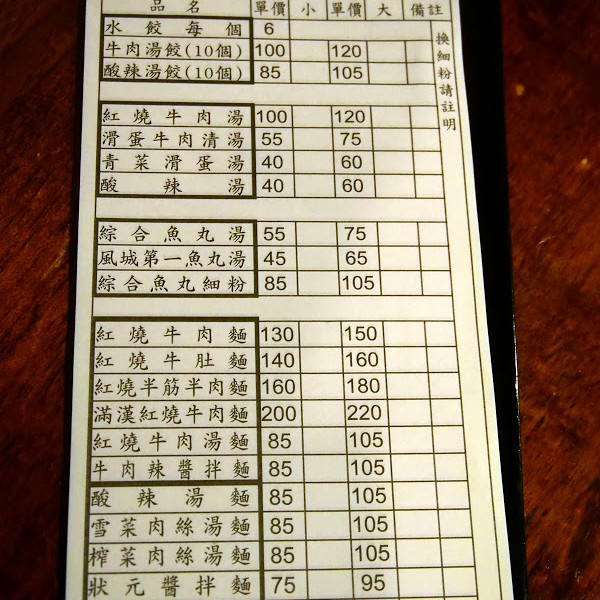 品名 單價 小 單價 大 備註
水餃每個 6
牛肉湯餃(10個) 100 120
酸辣湯餃(10個) 85 105
換細粉請註明
紅燒牛肉湯 100 120
滑蛋牛肉清湯 55 75
青菜滑蛋湯 40 60
酸辣湯 40 60
綜合魚丸湯 55 75
風城第一魚丸湯 45 65
綜合魚丸細粉 85 105
紅燒牛肉麵 130 150
紅燒牛肚麵 140 160
紅燒半筋半肉麵 160 180
滿漢紅燒牛肉麵 200 220
紅燒牛肉湯麵 85 105
牛肉辣醬拌麵 85 105
酸辣湯麵 85 105
雪菜肉絲湯麵 85 105
榨菜肉絲湯麵 85 105
狀元醬拌麵 75 95